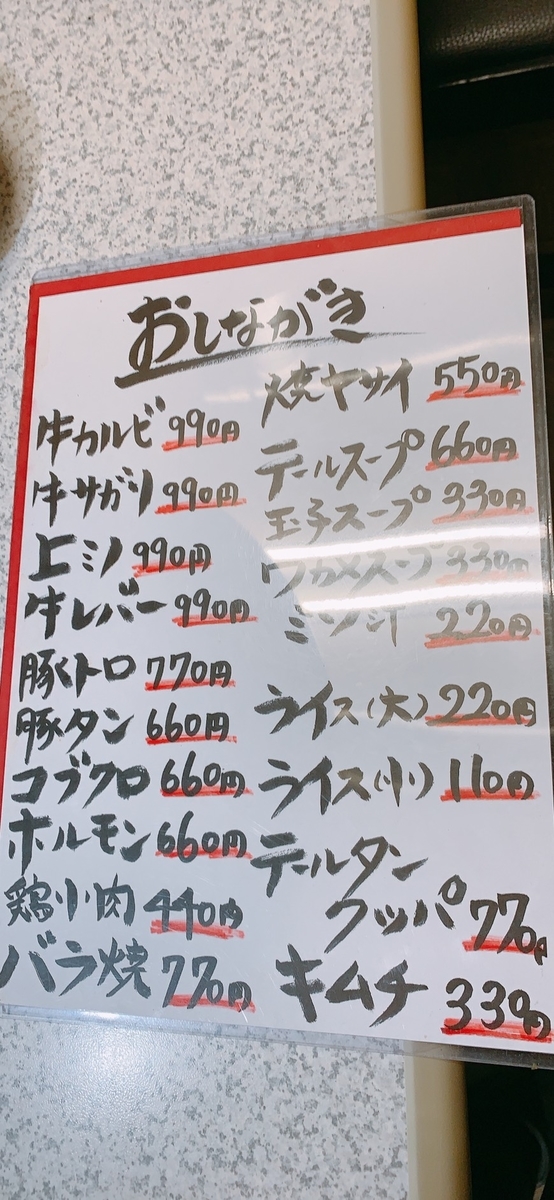 おしながき
牛カルビ 990円
牛サガリ 990円
上ミノ 990円
牛レバー 990円
豚トロ 770円
豚タン 660円
コブクロ 660円
ホルモン 660円
鶏小肉 440円
バラ焼 770円
焼ヤサイ 550円
テールスープ 660円
玉子スープ 330円
ワカメスープ 330円
ミソ汁 220円
ライス(大) 220円
ライス(小) 110円
テールタン
クッパ 770円
キムチ 330円